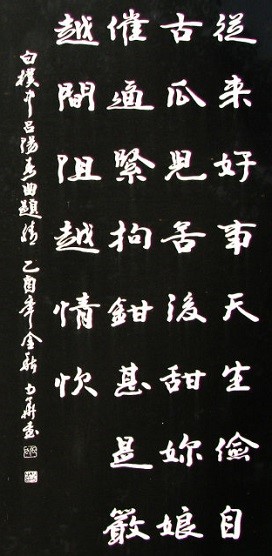 從来好事天生儉自
古瓜兒苦後甜妳娘
催逼緊拘鉗甚是嚴
越間阻越情忺
白樸中呂陽春曲題情 乙酉年金秋